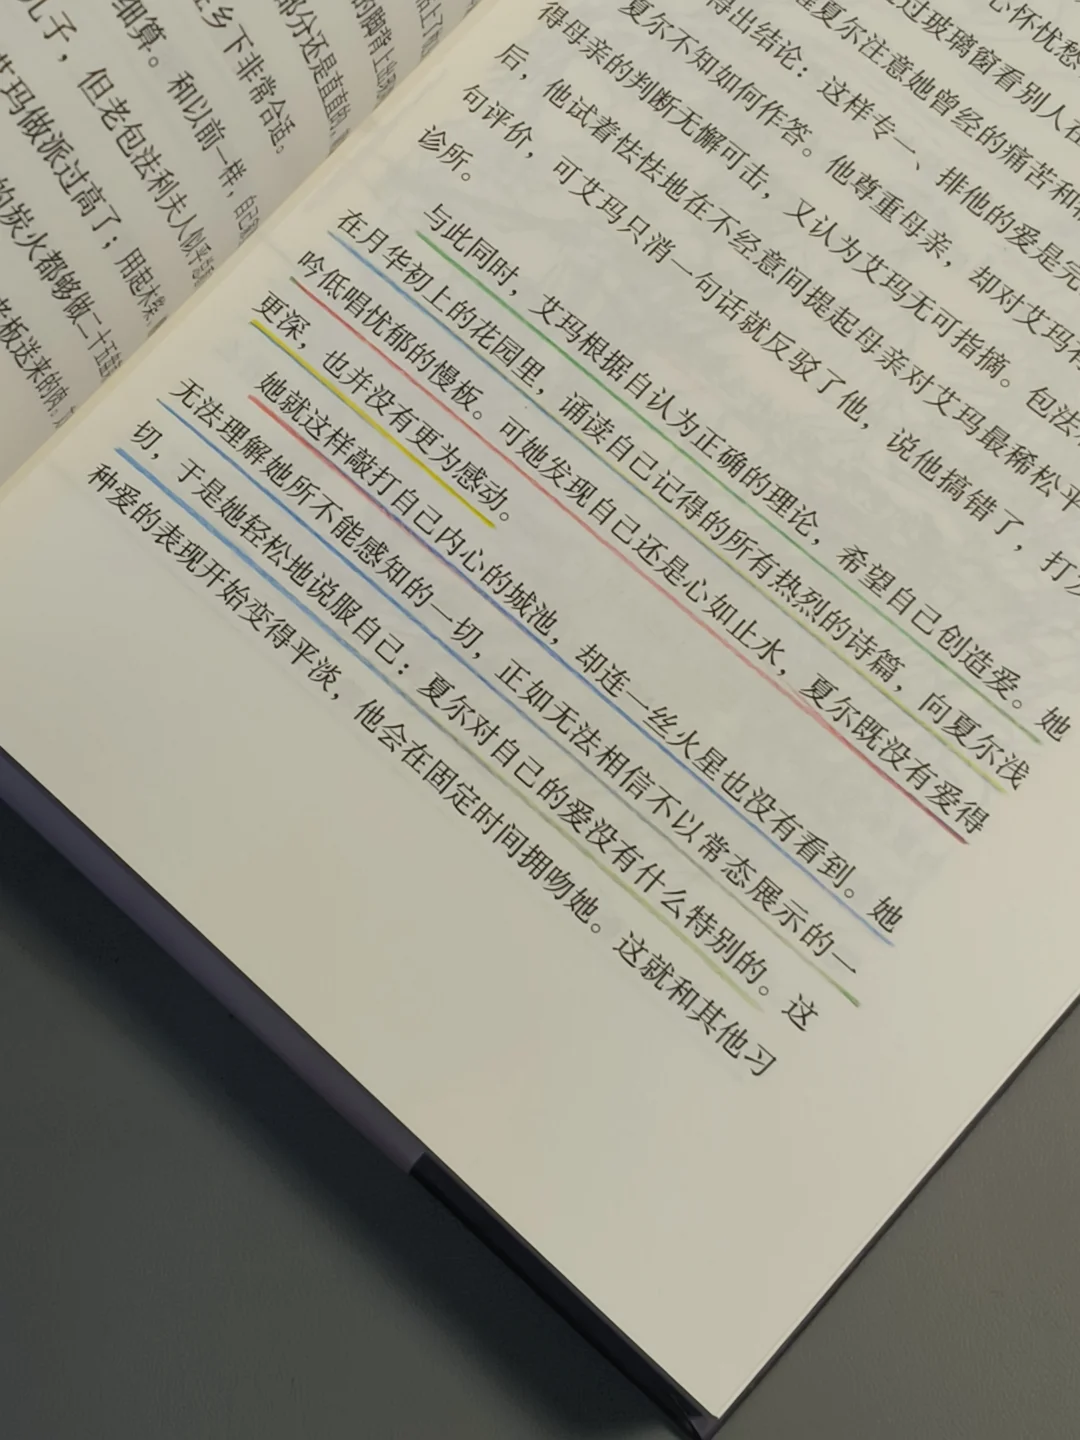 细算。和以前一样，自己
在乡下非常合适。
部分还是直直的
的脚背上
儿子，但老包法利夫人似乎
艾玛做派过高了；用起木柴、
的炭火都够做二十五
老板送来的肉。
心怀忧愁
过玻璃窗看别人在
夏尔注意她曾经的痛苦和
得出结论：这样专一、排他的爱是完
夏尔不知如何作答。他尊重母亲，却对艾玛
得母亲的判断无懈可击，又认为艾玛无可指摘。包法
后，他试着怯怯地在不经意间提起母亲对艾玛最稀松平
句评价，可艾玛只消一句话就反驳了他，说他搞错了，打发
诊所。
与此同时，艾玛根据自认为正确的理论，希望自己创造爱。她
在月华初上的花园里，诵读自己记得的所有热烈的诗篇，向夏尔浅
吟低唱忧郁的慢板。可她发现自己还是心如止水，夏尔既没有爱得
更深，也并没有更为感动。
她就这样敲打自己内心的城池，却连一丝火星也没有看到。她
无法理解她所不能感知的一切，正如无法相信不以常态展示的一
切，于是她轻松地说服自己：夏尔对自己的爱没有什么特别的。这
种爱的表现开始变得平淡，他会在固定时间拥吻她。这就和其他习